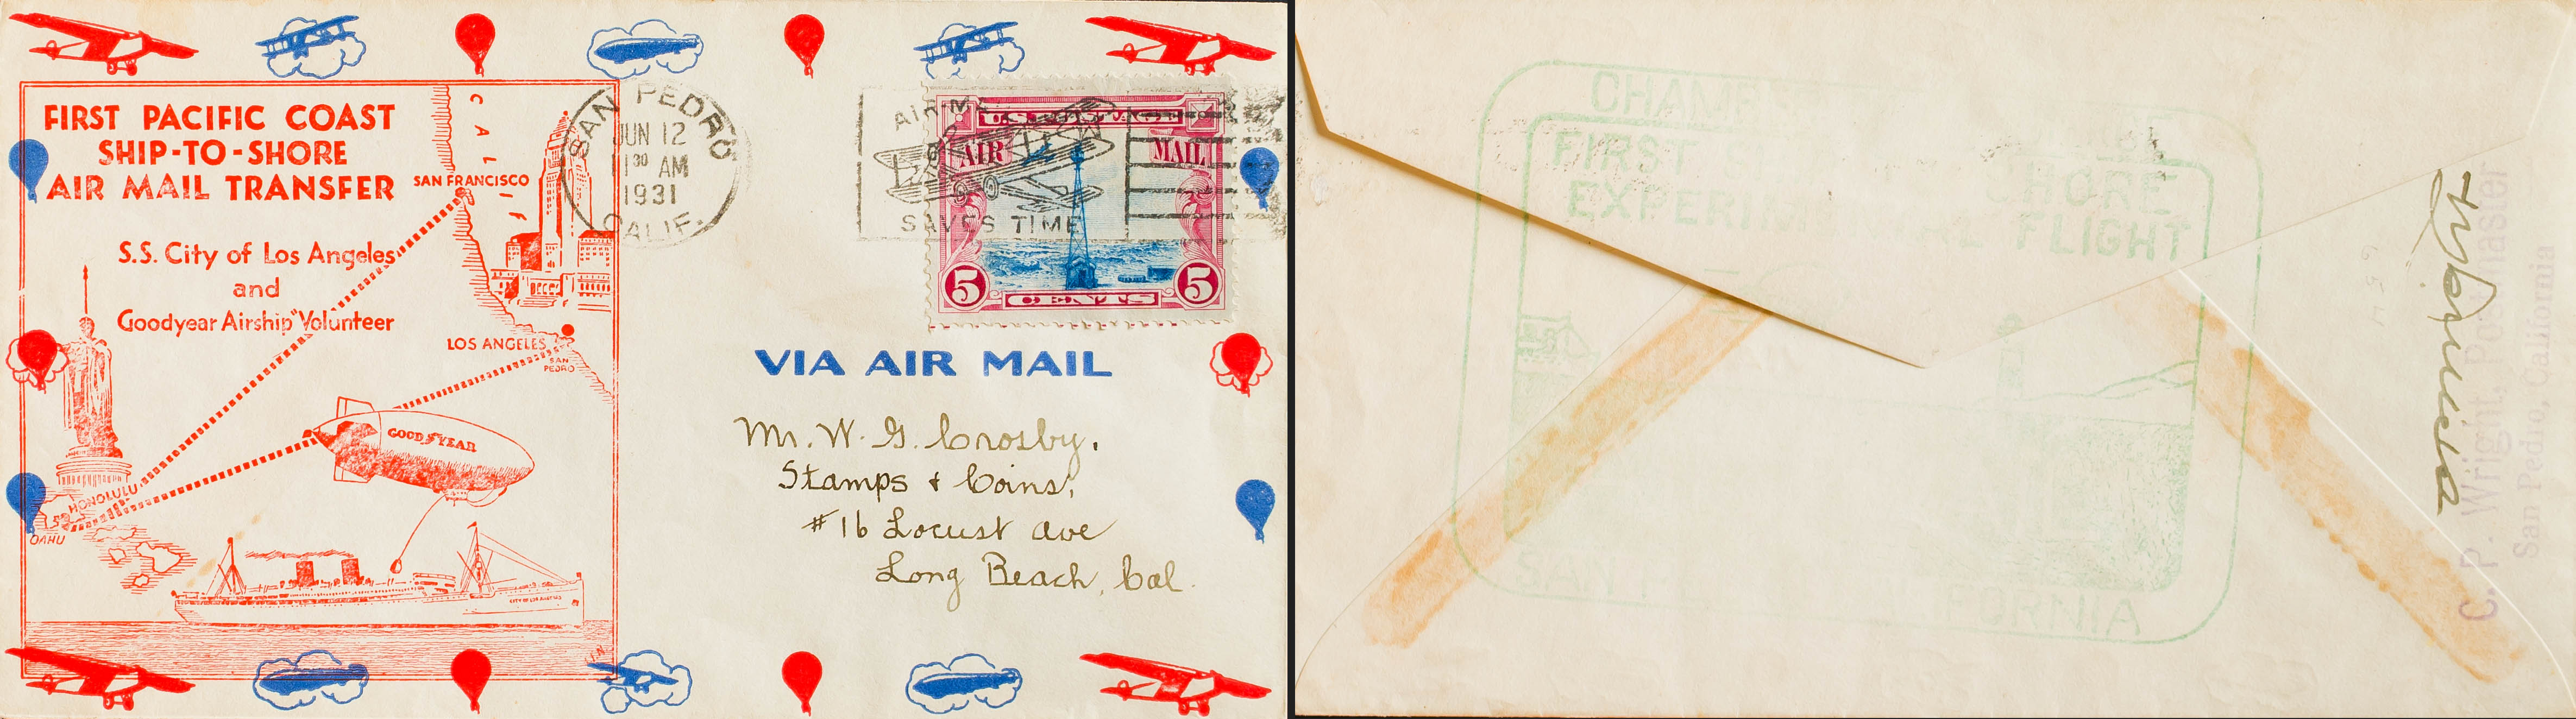 FIRST PACIFIC COAST
SHIP-TO-SHORE
AIR MAIL TRANSFER
S.S. City of Los Angeles
and
Goodyear Airship "Volunteer
CALIF
SAN FRANCISCO
LOS ANGELES
SAN
PEDRO
HONOLULU
OAHU
GOODYEAR
CITY OF LOS ANGELES
SAN PEDRO
JUN 12
11 30 AM
1931
CALIF.
AIR MAIL
SAVES TIME
AIR MAIL
5 CENTS 5
VIA AIR MAIL
Mr. W. G. Crosby.
Stamps & Coins,
#16 Locust Ave
Long Beach, Cal.
CHAMB
FIRST SHORE
EXPERIMENTAL FLIGHT
CALIFORNIA
C. P. Wright, Postmaster
San Pedro, California